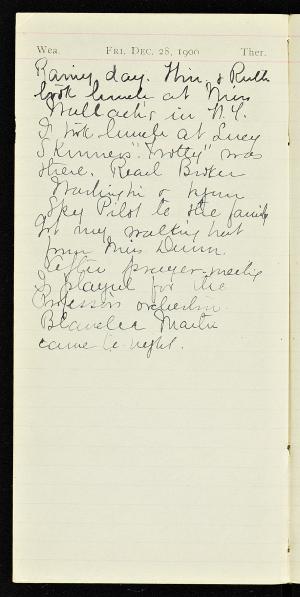 Wea. FRI. DEC. 28, 1900 Ther.
Rainy day. Him. & Ruth
took lunch at Miss
Wallach's in N.Y.
I took lunch at Lucy
Skinners "Trotty" was
there. Read Broker
Washington or
Sky Pilot to the family
Got my walking hat
from Miss Dunn.
After prayer-meeting
I played for the
Professors orchestra.
Blanche Martin
came to-night.